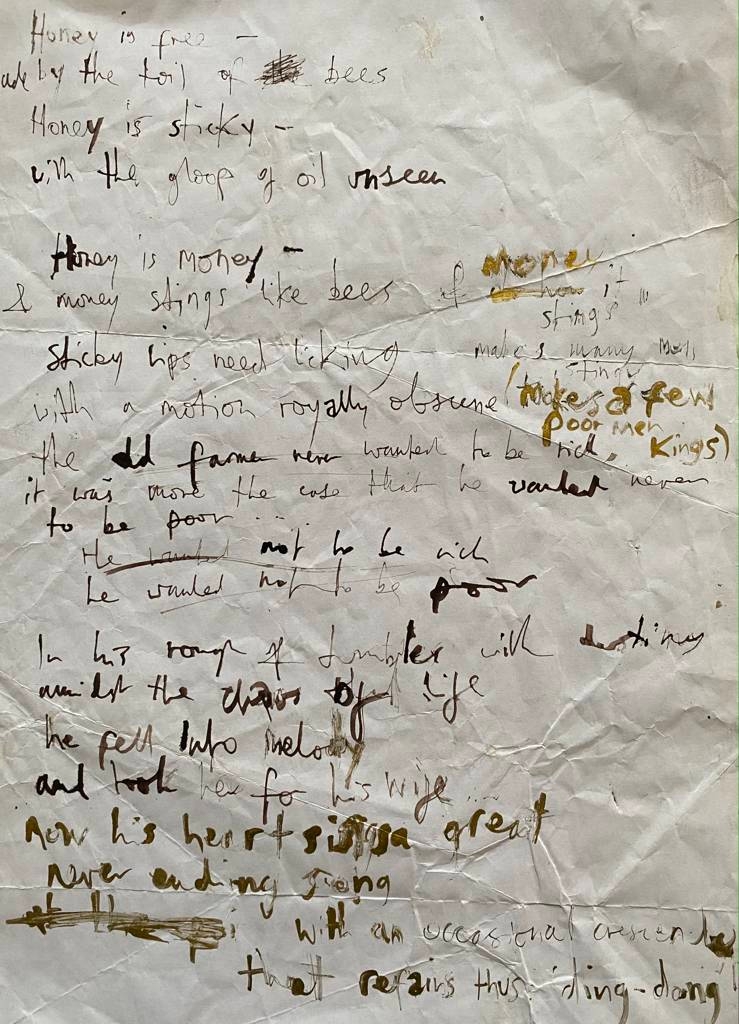 Honey is free -
by the toil of bees
Honey is sticky -
with the gloop of oil unseen
Honey is money -
& money stings like bees of money
how it stings
sticky lips need licking - makes many
stings
with a motion royally obscene (makes a few
poor men Kings)
the old farmer never wanted to be rich,
it was more the case that he wanted never
to be poor ....
He wanted not to be rich
he wanted not to be poor
In his rough & tumbler with destiny
amidst the chaos of life
he fell into melody
and took her for his wife ...
Now his heart sings a great
never ending song
with an occasional
that refains thus 'ding-dong'